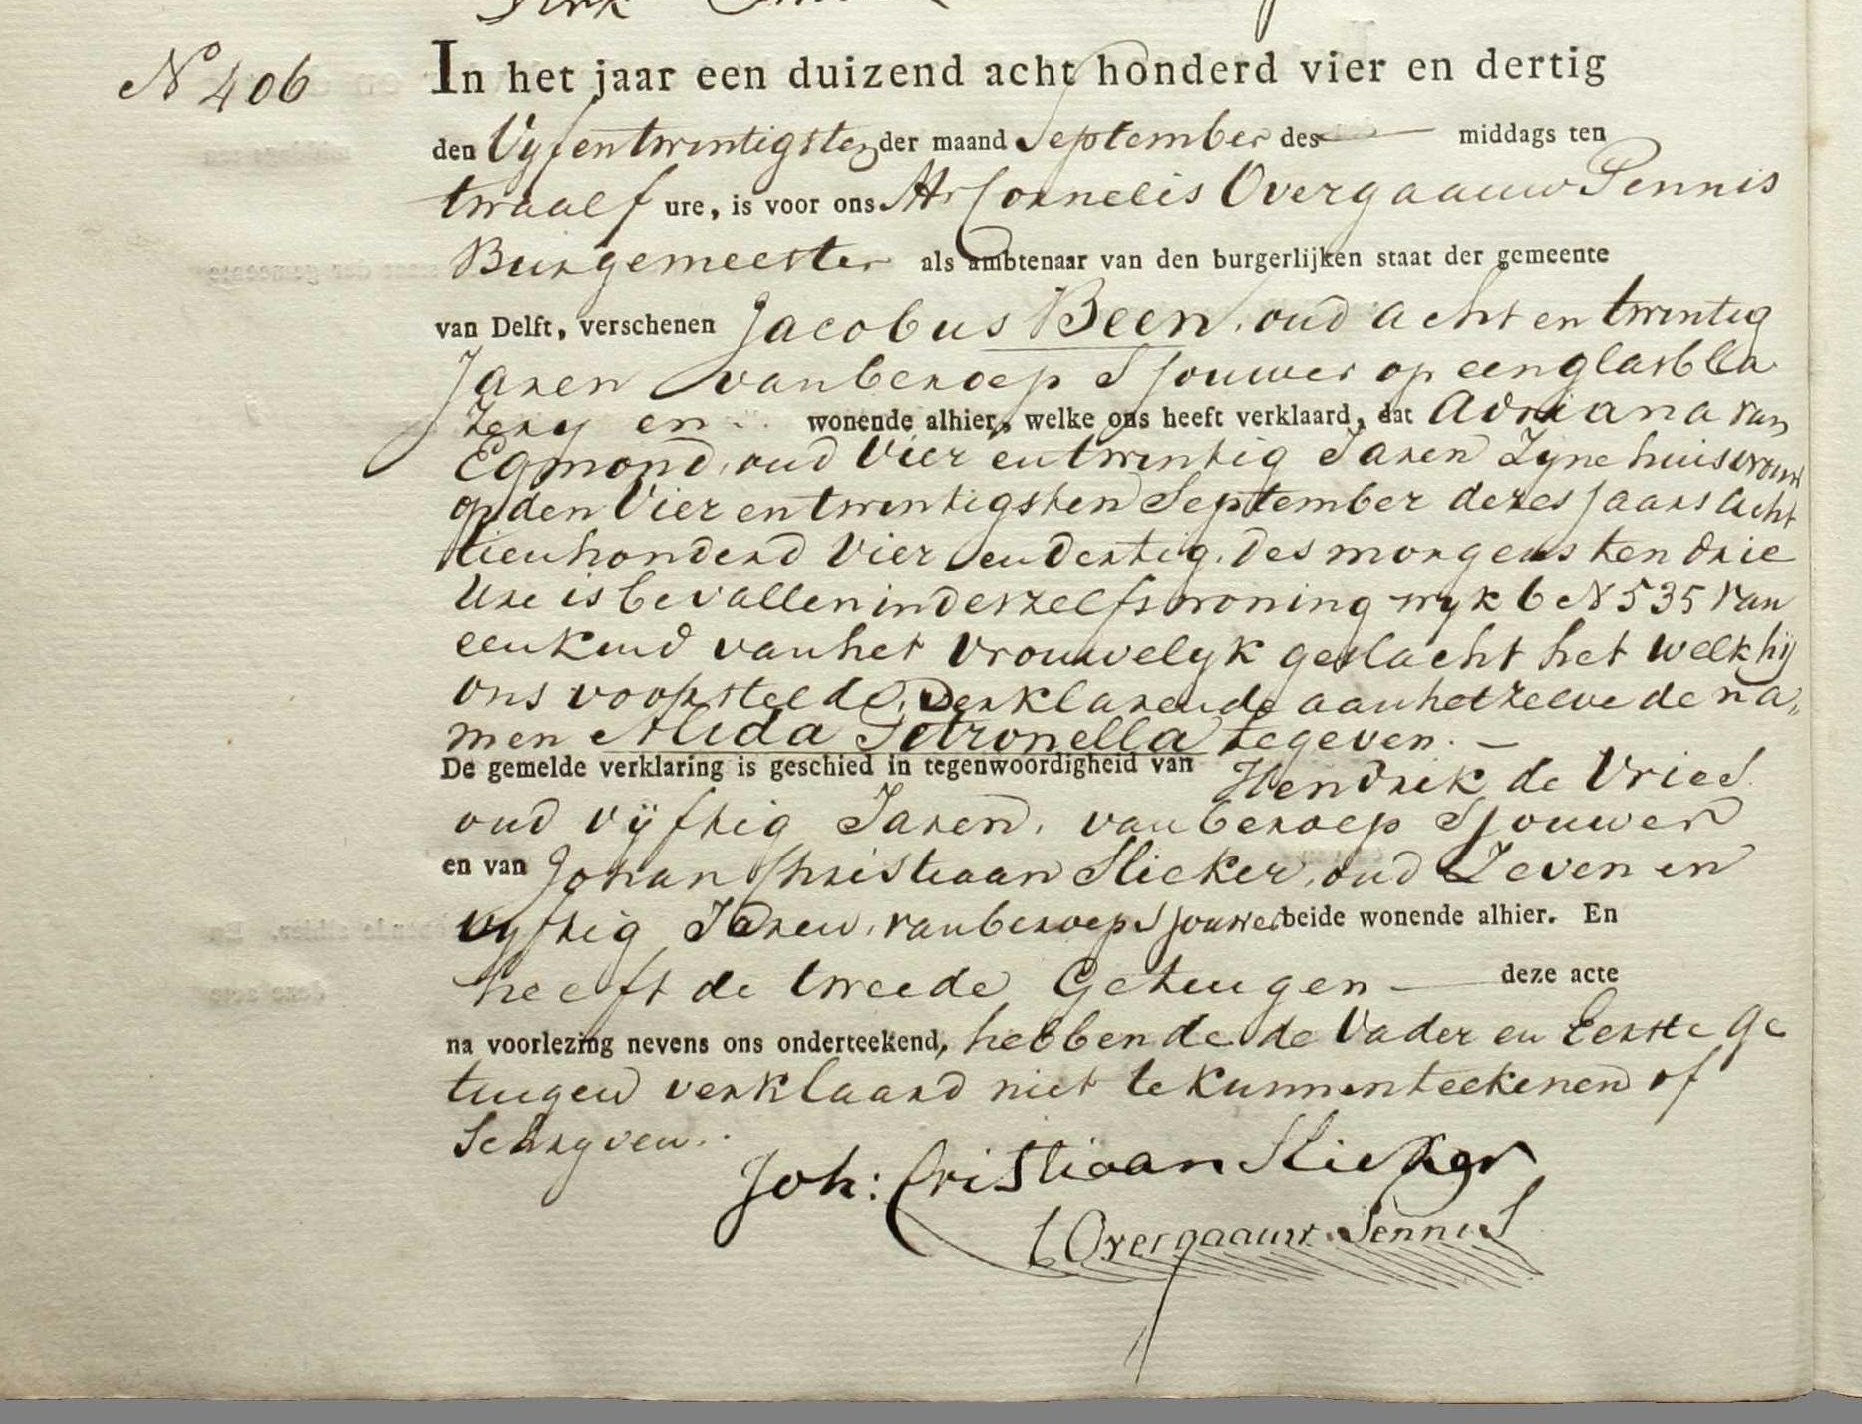 N 406
In het jaar een duizend acht honderd vier en dertig
den Vyfentwintigsten der maand September des middags ten
twaalf ure, is voor ons Mr Cornelis Overgaauw Pennis
Burgemeester als ambtenaar van den burgerlijken staat der gemeente
van Delft, verschenen Jacobus Been, oud acht en twintig
Jaren van beroep Sjouwer op een glasbla
zery en wonende alhier, welke ons heeft verklaard, dat Adriana van
Egmond, oud Vier en twintig Jaren Zyne huisvrouw
op den Vier en twintigsten September dezes jaars acht
tienhonderd Vier en Dertig, des morgens ten drie
Ure is bevallen in derzelfs woning wyk 6 N 535 van
een kind van het vrouwelyk geslacht het welk hij
ons voorstelde, Verklarende aan hetzelve de na„
men Alida Petronella te geven. —
De gemelde verklaring is geschied in tegenwoordigheid van Hendrik de Vries
oud vÿftig Jaren, van beroep Sjouwer
en van Johan Christiaan Slieker, oud Zeven en
vyftig Jaren, van beroep Sjouwer beide wonende alhier. En
heeft de tweede Getuigen — deze acte
na voorlezing nevens ons onderteekend, hebbende de Vader en Eerste Ge
tuigen verklaard niet te kunnen teekenen of
Schryven.
Joh: Cristiaan Slieker
C Overgaauw Pennis